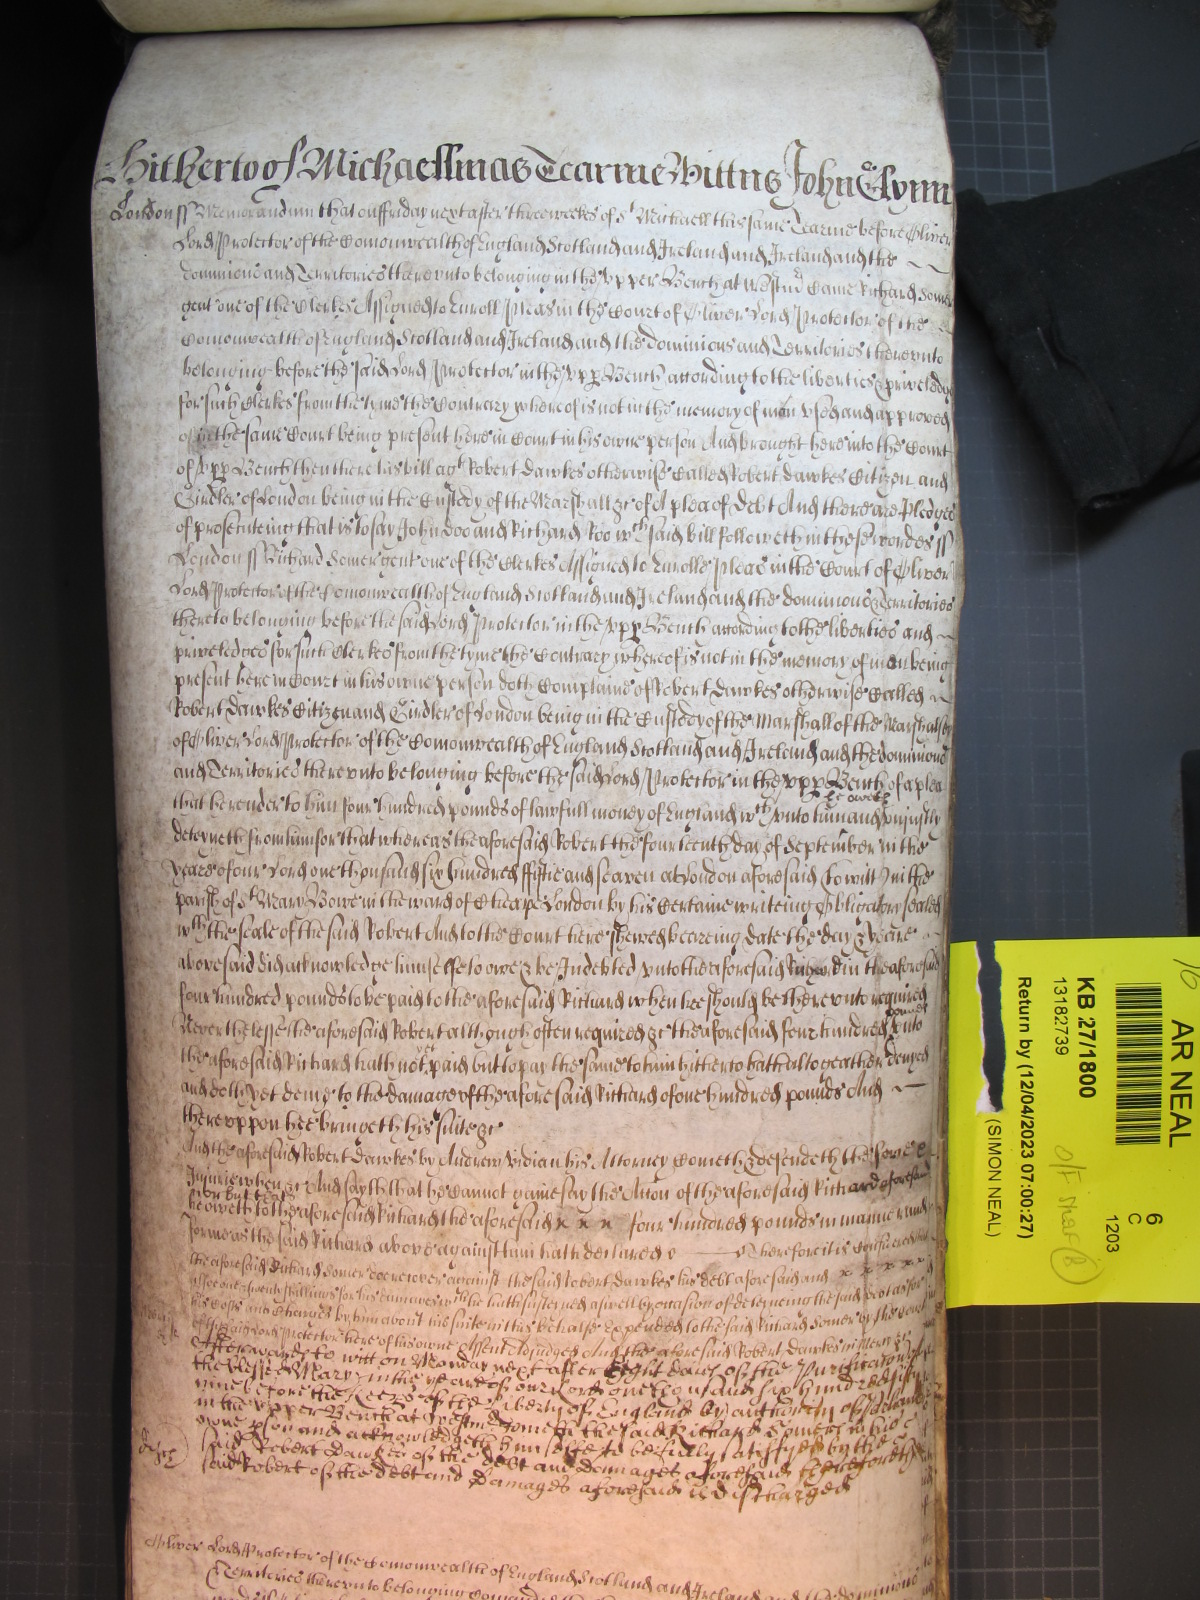 Hitherto of Michaellmas Tearme Wittns John Glynn
London ss Memorandum that on ffriday next after three weekes of St Michaell this same Tearme before Oliver
Lord Protector of the Comonwealth of England Scotland and Ireland and Ireland and the
dominions and Territories therevnto belonging in the vpper Bench at Westmr Came Richard Somer
gent one of the Clerkes Assigned to Enroll Pleas in the Court of Oliver Lord Protector of the
Comonwealth of England Scotland and Ireland and the dominions and Territories therevnto
belonging before the said Lord Protector in the vpp Bench according to the liberties & priveledges
for such Clerkes from the tyme the Contrary whereof is not in the memory of man vsed and approved
of in the same Court being present here in Court in his owne person And brought here into the Court
of vpp Bench then there his bill agt Robert Dawkes otherwise Called Robert Dawkes Citizen and
Girdler of London being in the Custody of the Marshall &c of A plea of Debt And there are Pledges
of prosecuteing that is to say John Doo and Richard Roo wch said bill followeth in these wordes ss
London ss Richard Somer gent one of the Clerkes Assigned to Enrolle Pleas in the Court of Oliver
Lord Protector of the Comonwealth of England Scotland and Ireland and the dominions & Territories
thereto belonging before the said Lord Protector in the vpp Bench according to the liberties and
priveledges for such Clerkes from the tyme the Contrary whereof is not in the memory of man being
present here in Court in his owne person doth Complaine of Robert Dawkes otherwise Called
Robert Dawkes Citizen and Girdler of London being in the Custody of the Marshall of the Marshalsey
of Oliver Lord Protector of the Comonwealth of England Scotland and Ireland and the dominions
and Territories therevnto belonging before the said Lord Protector in the vpp Bench of a plea
he oweth
that he render to him four hundred pounds of lawfull money of England wch vnto him and vniustly
deteyneth from him for that whereas the aforesaid Robert the fourteenth day of September in the
yeare of our Lord one thousand six hundred ffiftie and seaven at London aforesaid (to witt) in the
parish of St Mary Bowe in the ward of Cheape London by his Certaine writeing Obligatory sealed
wth the seale of the said Robert And to the Court here shewed beareing date the day & yeare
abovesaid did acknowledge himselfe to owe & be Indebted vnto the aforesaid Richard in the aforesaid
four hundred pounds to be paid to the aforesaid Richard when hee should be therevnto required
pounds
Neverthelesse the aforesaid Robert although often required &c the aforesaid four hundred vnto
the aforesaid Richard hath not paid but to pay the same to him hitherto hath altogeather denyed
and doth yet deny to the damage of the aforesaid Richard of one hundred pounds And
therevppon hee bringeth his suite &c
And the aforesaid Robert Dawkes by Andrew Vidian his Attorney Cometh & defendeth the force &
Iniurie when &c And sayth that he Cannot gainesay the Action of the aforesaid Richard aforesaid
nor but that
he oweth to the aforesaid Richard the aforesaid x x x four hundred pounds in manner and
forme as the said Richard above against him hath declared Therefore it is Considered that
the aforesaid Richard Somer doe recover against the said Robert Dawkes his debt aforesaid and x x x x x
shillings for his damages wch he hath susteined aswell by occasion of deteineing the said debt as for
his Costs and Charges by him about his suite in this behalfe Expended to the said Richard Somer by the Court
of the said Lord Protector here of his owne Assent Adjudged And the aforesaid Robert Dawkes in Mercy &c
Afterwards to witt on Monday next after Eight dayes of the Purification of
the blessed Mary in the yeare of our Lord one thousand six hundred fifty
nine before the Keeprs of the Liberty of England by authority of Parliament
in the vpper Bench at Westmr Cometh the said Richard Somer in his
owne pson and acknowledgeth himselfe to be fully satisfyed by the
said Robert Dawkes of the debt and Damages aforesaid Therefore the
said Robert of the debt and Damages aforesaid is discharged
Oliver Lord Protector of the Comonwealth of England Scotland and Ireland and the dominions
Territories therevnto belonging
AR NEAL
KB 27/1800
13182739
Return by (12/04/2023 07:00:27)
(SIMON NEAL)
6
C
1203
10